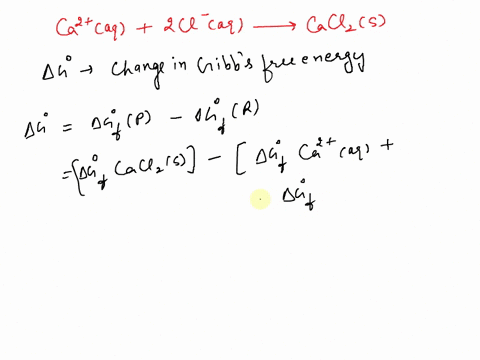 Ca²⁺(aq) + 2Cl⁻(aq) ⟶ CaCl₂(s)
ΔG° → Change in Gibb's free energy
ΔG° = ΔG°f(P) − ΔG°f(R)
= [ΔG°f CaCl₂(s)] − [ΔG°f Ca²⁺(aq) +
ΔG°f